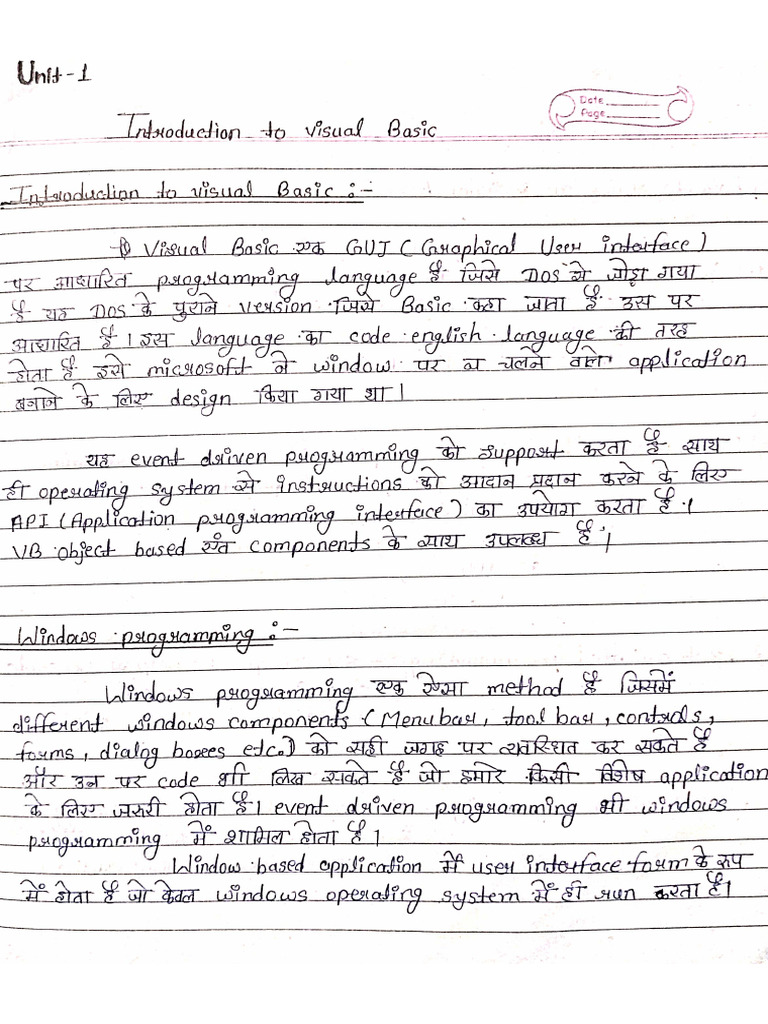 Unit-1
Date
Page
Introduction to visual Basic
Introduction to visual Basic :-
Visual Basic एक GUI (Graphical User interface)
पर आधारित programming language है जिसे DOS से जोड़ा गया
है यह DOS के पुराने version जिसे Basic कहा जाता है उस पर
आधारित है। इस language का code english language की तरह
होता है इसे microsoft ने window पर चलने वाले application
बनाने के लिए design किया गया था।
यह event driven programming को support करता है साथ
ही operating system से instructions को आदान प्रदान करने के लिए
API (Application programming interface) का उपयोग करता है।
VB object based एंव components के साथ उपलब्ध है।
Windows programming :-
Windows programming एक ऐसा method है जिसमें
different windows components (Menubar, tool bar, controls,
forms, dialog boxees etc.) को सही जगह पर व्यवस्थित कर सकते है
और उन पर code भी लिख सकते है जो हमारे किसी विशेष application
के लिए जरूरी होता है। event driven programming भी windows
programming में शामिल होता है।
Window based application में user interface form के रूप
में होता है जो केवल windows operating system में ही run करता है।